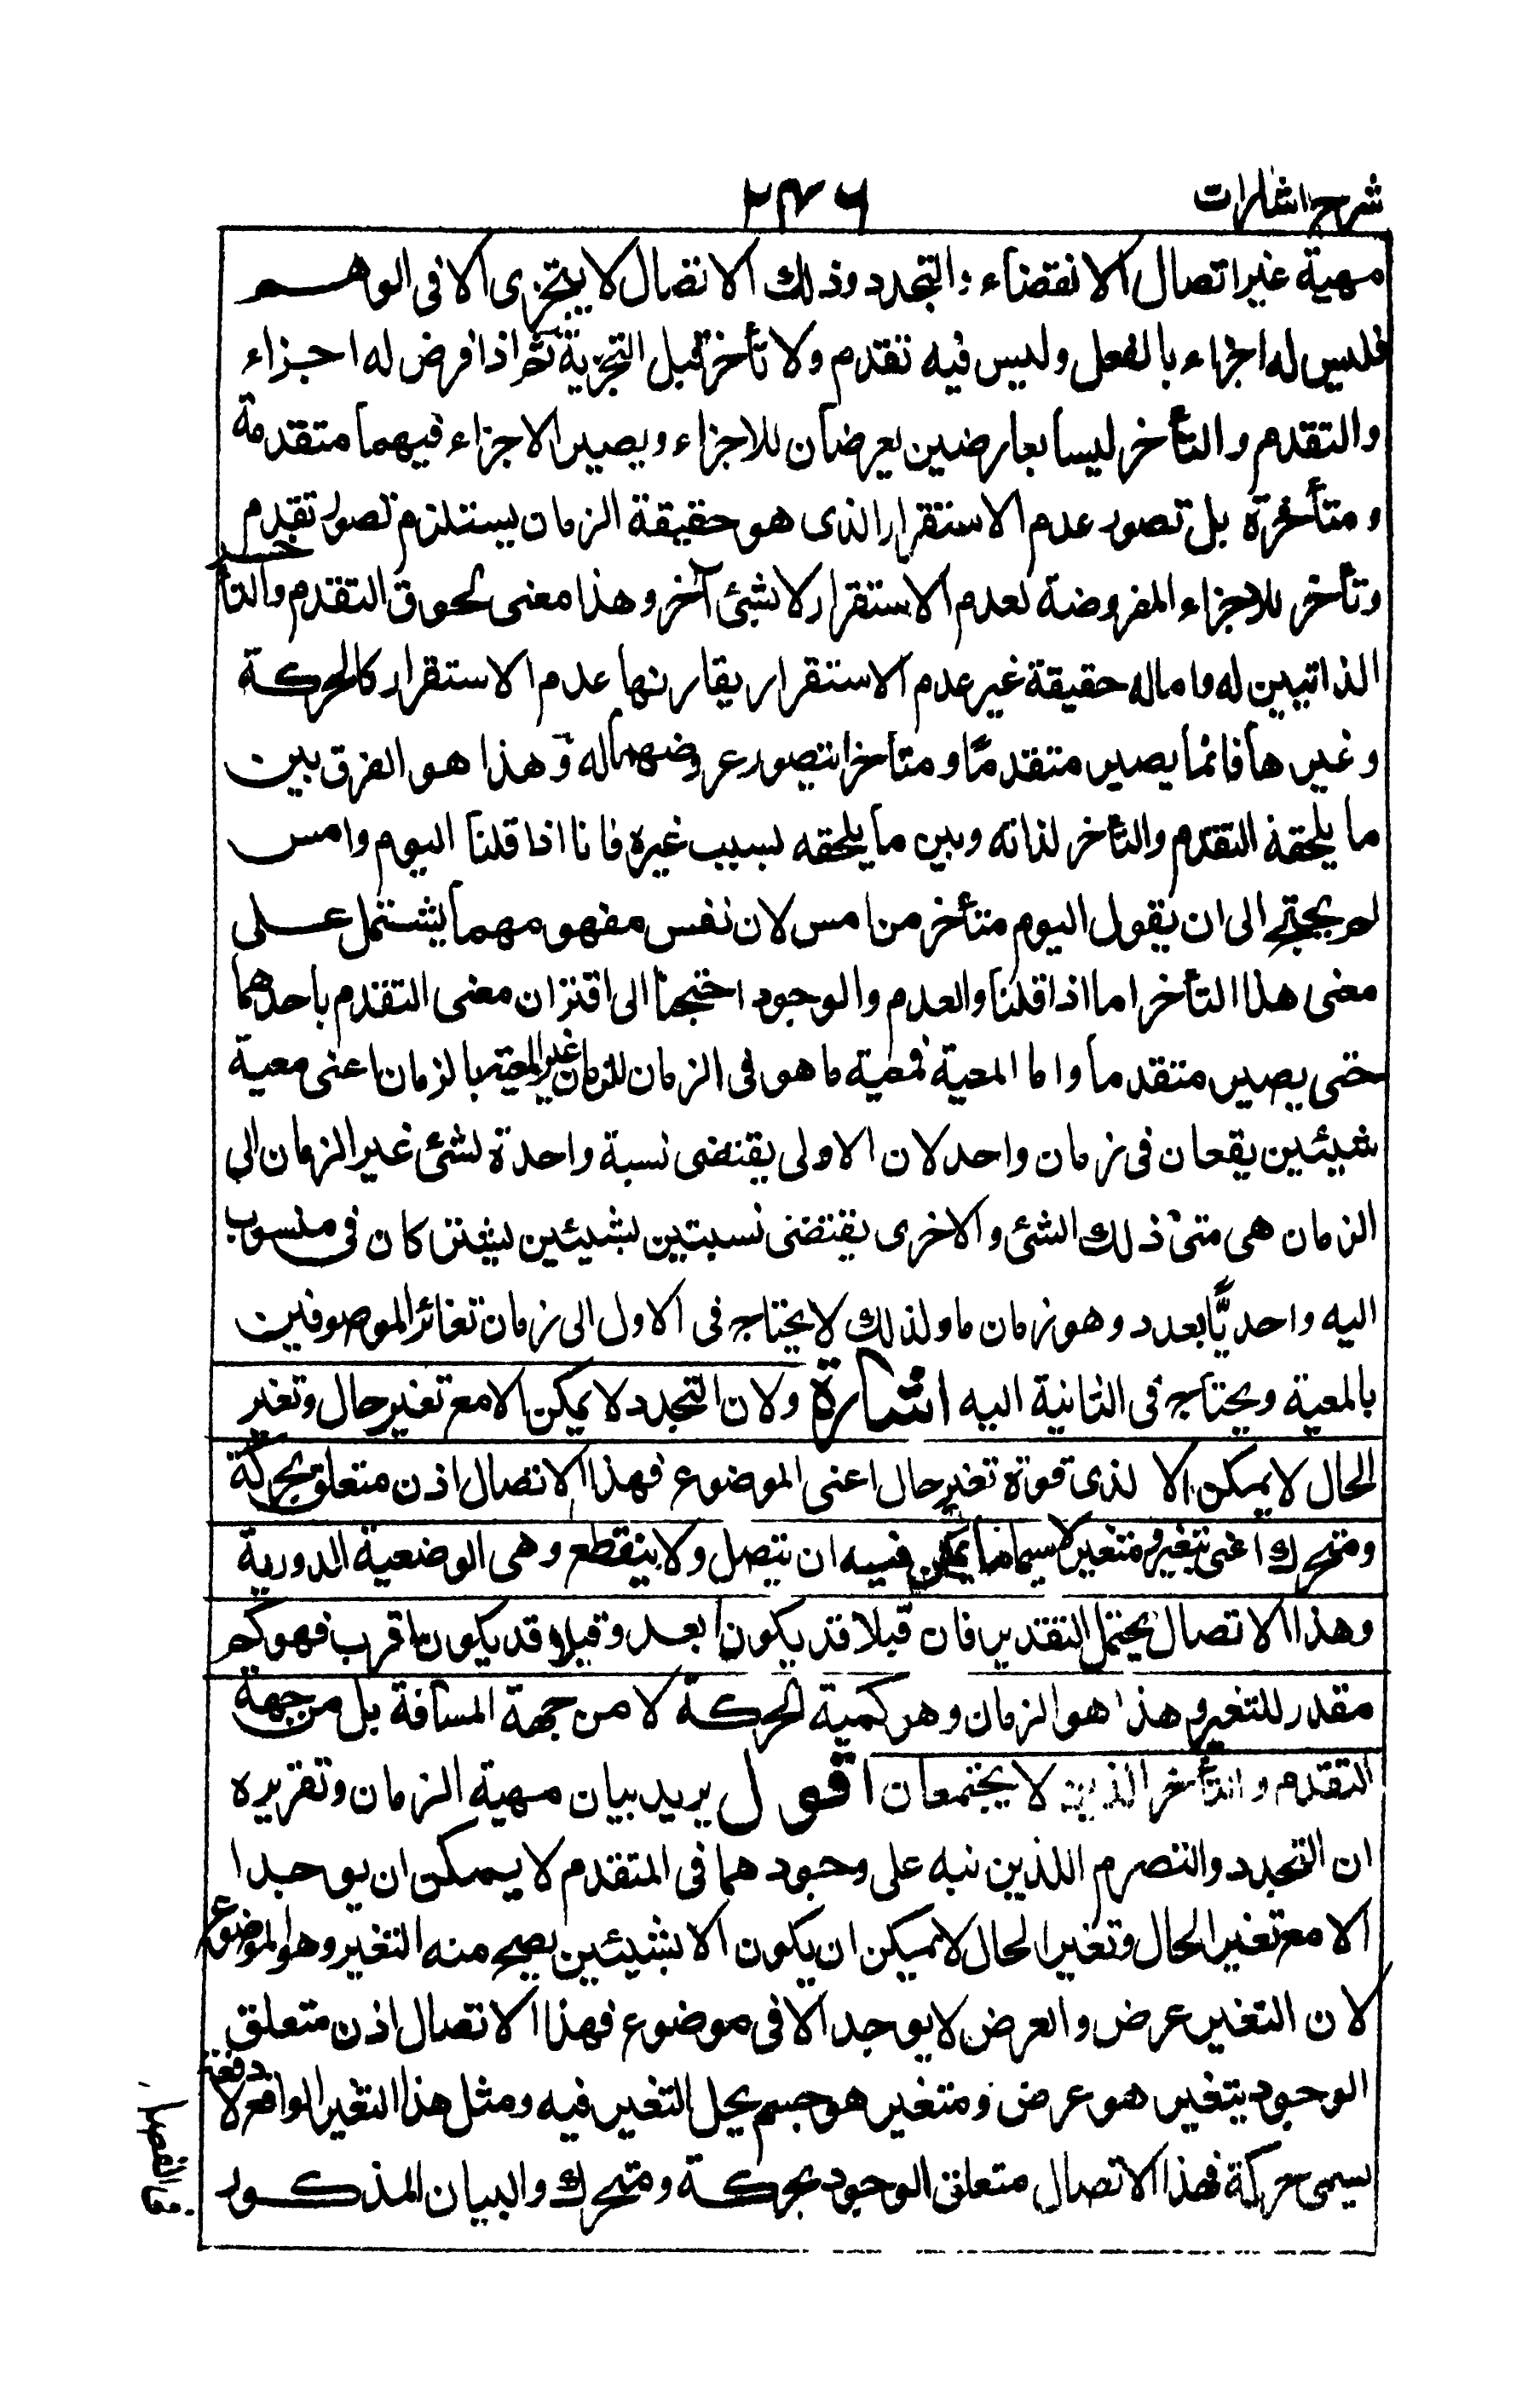 شرح اشارات
٢٣٦
مهية غير اتصال الانقضاء والتجدد وذلك الاتصال لا يتجزى الا فى الوهم
فليس له اجزاء بالفعل وليس فيه تقدم ولا تأخر قبل التجزية ثم اذا فرض له اجزاء
والتقدم والتأخر ليسا بعارضين يعرضان للاجزاء ويصير الاجزاء فيهما متقدمة
ومتأخرة بل تصور عدم الاستقرار الذى هو حقيقة الزمان يستلزم تصور تقدم
وتأخر للاجزاء المفروضة لعدم الاستقرار لا لشئ آخر وهذا معنى لحوق التقدم والتأخر
الذاتيين له واما ماله حقيقة غير عدم الاستقرار يقارنها عدم الاستقرار كالحركة
وغيرها فانما يصير متقدمًا ومتأخرا بتصور عروضهما له وهذا هو الفرق بين
ما يلحقه التقدم والتأخر لذاته وبين ما يلحقه بسبب غيره فانا اذا قلنا اليوم وامس
لم يحتج الى ان يقول اليوم متأخر من امس لان نفس مفهومهما يشتمل على
معنى هذا التأخر اما اذا قلنا والعدم والوجود احتجنا الى اقتران معنى التقدم باحدهما
حتى يصير متقدما واما المعية فمعية ما هو فى الزمان للزمان غير المعية بالزمان اعنى معية
شيئين يقعان فى زمان واحد لان الاولى يقتضى نسبة واحدة لشئ غير الزمان الى
الزمان هى متى ذلك الشئ والاخرى يقتضى نسبتين بشيئين يشتركان فى منسوب
اليه واحد بالعدد وهو زمان ما ولذلك لا يحتاج فى الاول الى زمان تغائر الموصوفين
بالمعية ويحتاج فى الثانية اليه اشارة ولان التجدد لا يمكن الا مع تغير حال وتغير
الحال لا يمكن الا لذى قوة تغير حال اعنى الموضوع فهذا الاتصال اذن متعلق بحركة
ومتحرك اعنى بتغير ومتغير لا سيما ما يمكن فيه ان يتصل ولا ينقطع وهى الوضعية الدورية
وهذا الاتصال يحتمل التقدير فان قبلا قد يكون ابعد وقبلا قد يكون اقرب فهو كم
مقدر للتغير وهذا هو الزمان وهو كمية الحركة لا من جهة المسافة بل من جهة
التقدم والتأخر الذين لا يجتمعان اقول يريد بيان مهية الزمان وتقريره
ان التجدد والتصرم اللذين نبه على وجودهما فى المتقدم لا يمكن ان يوجدا
الا مع تغير الحال وتغير الحال لا يمكن ان يكون الا بشيئين يصح منه التغير وهو الموضوع
لان التغير عرض والعرض لا يوجد الا فى موضوع فهذا الاتصال اذن متعلق
الوجود بتغير هو عرض ومتغير هو جسم يحل التغير فيه ومثل هذا التغير الواقع لا دفعة
يسمى حركة فهذا الاتصال متعلق الوجود بحركة ومتحرك والبيان المذكور